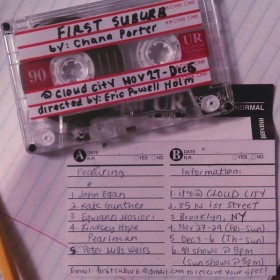 FIRST SUBURB
by: Chana Porter
90
UR
@ CLOUD CITY NOV 27-DEC 6
directed by: Eric Powell Holm
NORMAL
A DATE
N.R. YES NO
B DATE
N.R. YES NO
Featuring
Information:
1. John Egan
2. Kate Gunther
3. Edward Hosier
4. Lindsey Hope
Pearlman
5. Peter Mills Weiss
1. it's @ CLOUD CITY
2. 85 N 1st STREET
3. Brooklyn, NY
4. Nov 27-29 (Fri-Sun)
5. Dec 3-6 (Th-Sun)
6. All shows @ 8pm
(Sun shows @ 5pm)
Email firstsuburb@gmail.com to reserve your spot!